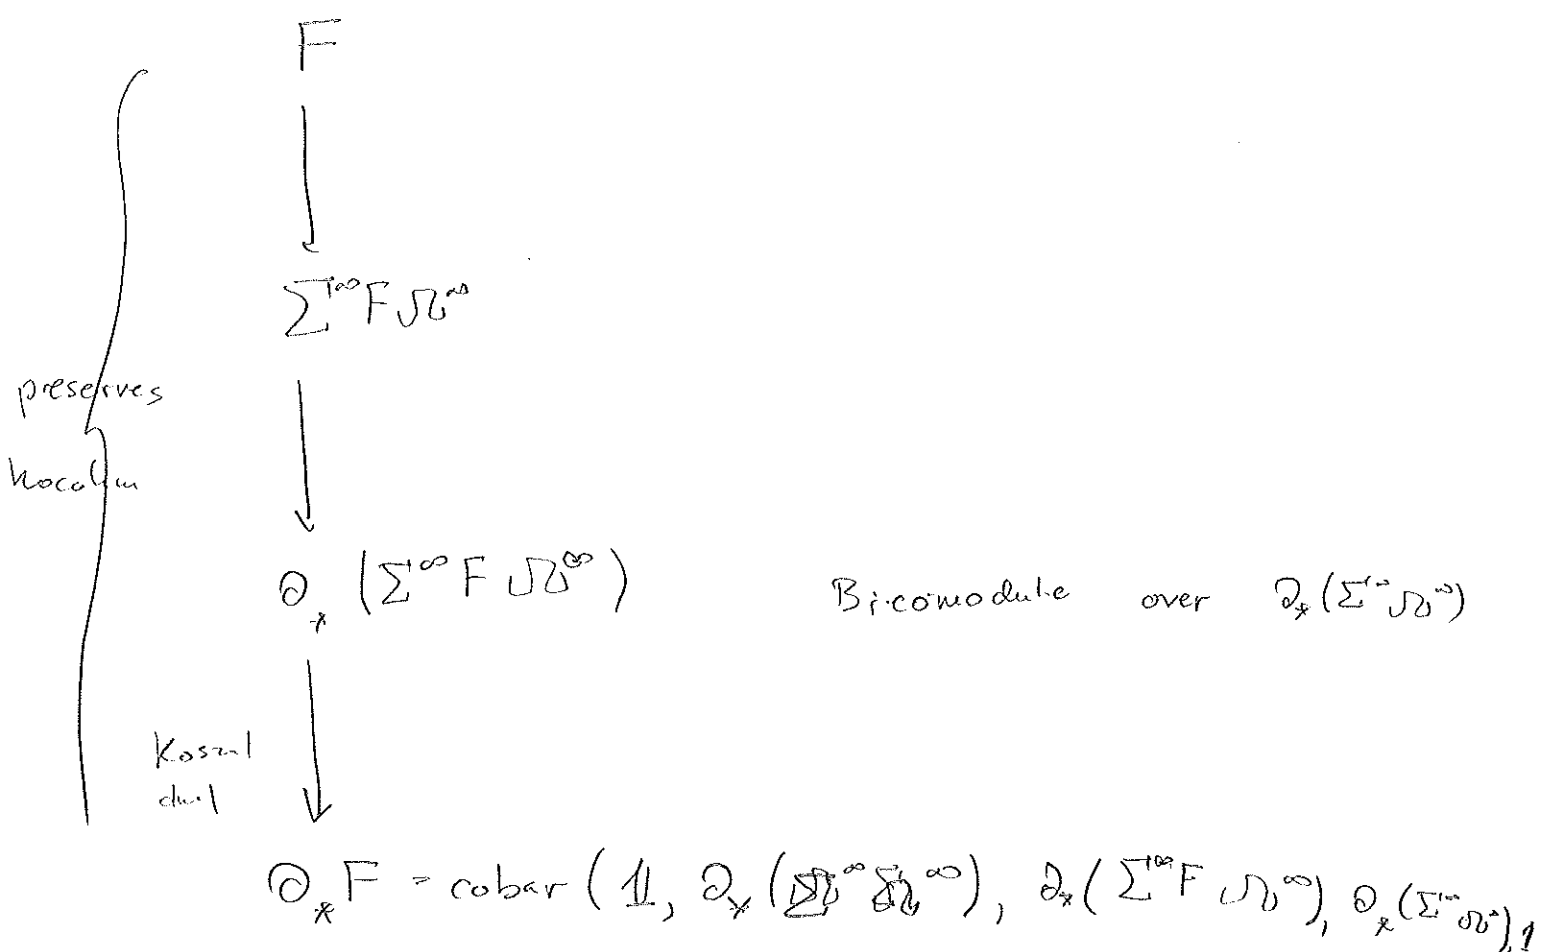 F
Σ^∞ F Ω^∞
preserves
hocolim
∂_* (Σ^∞ F Ω^∞) Bicomodule over ∂_*(Σ^∞ Ω^∞)
Koszul
dual
∂_* F = cobar (1, ∂_*(Σ^∞ Ω^∞), ∂_*(Σ^∞ F Ω^∞), ∂_*(Σ^∞ Ω^∞), 1